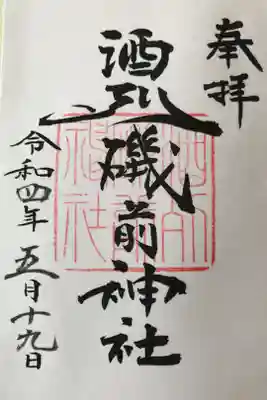 奉拝
酒列磯前神社
令和四年 五月十九日